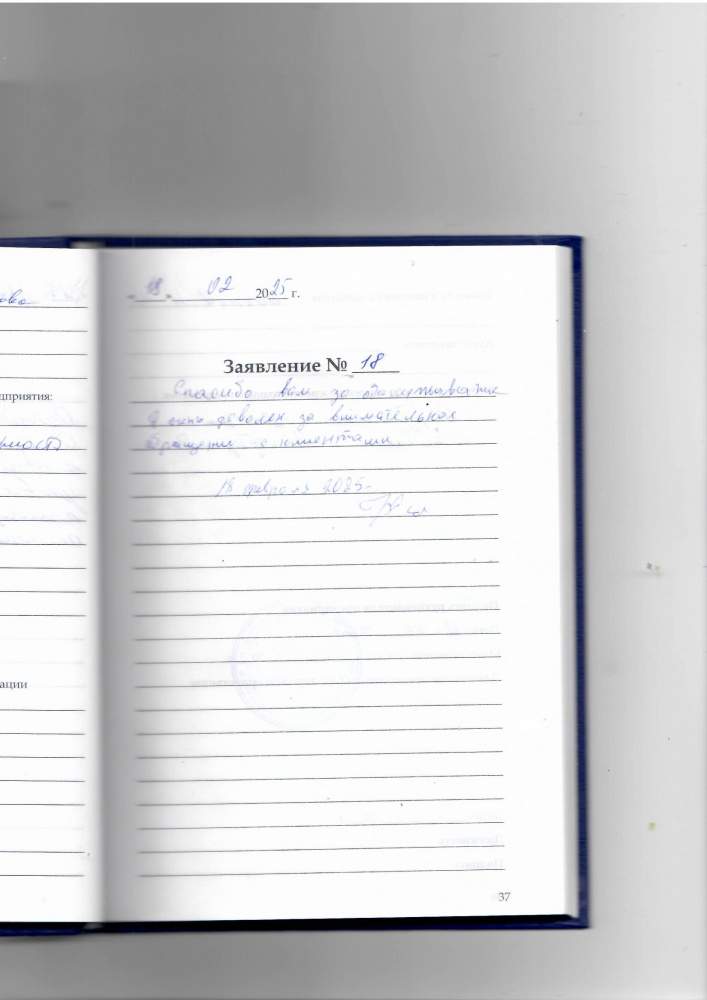 ова
« 18 » 02 2025 г.
Заявление № 18
Спасибо вам за обслуживание
Я очень доволен за внимательное
обращение с клиентами.
дприятия:
18 февраля 2025
ации
37